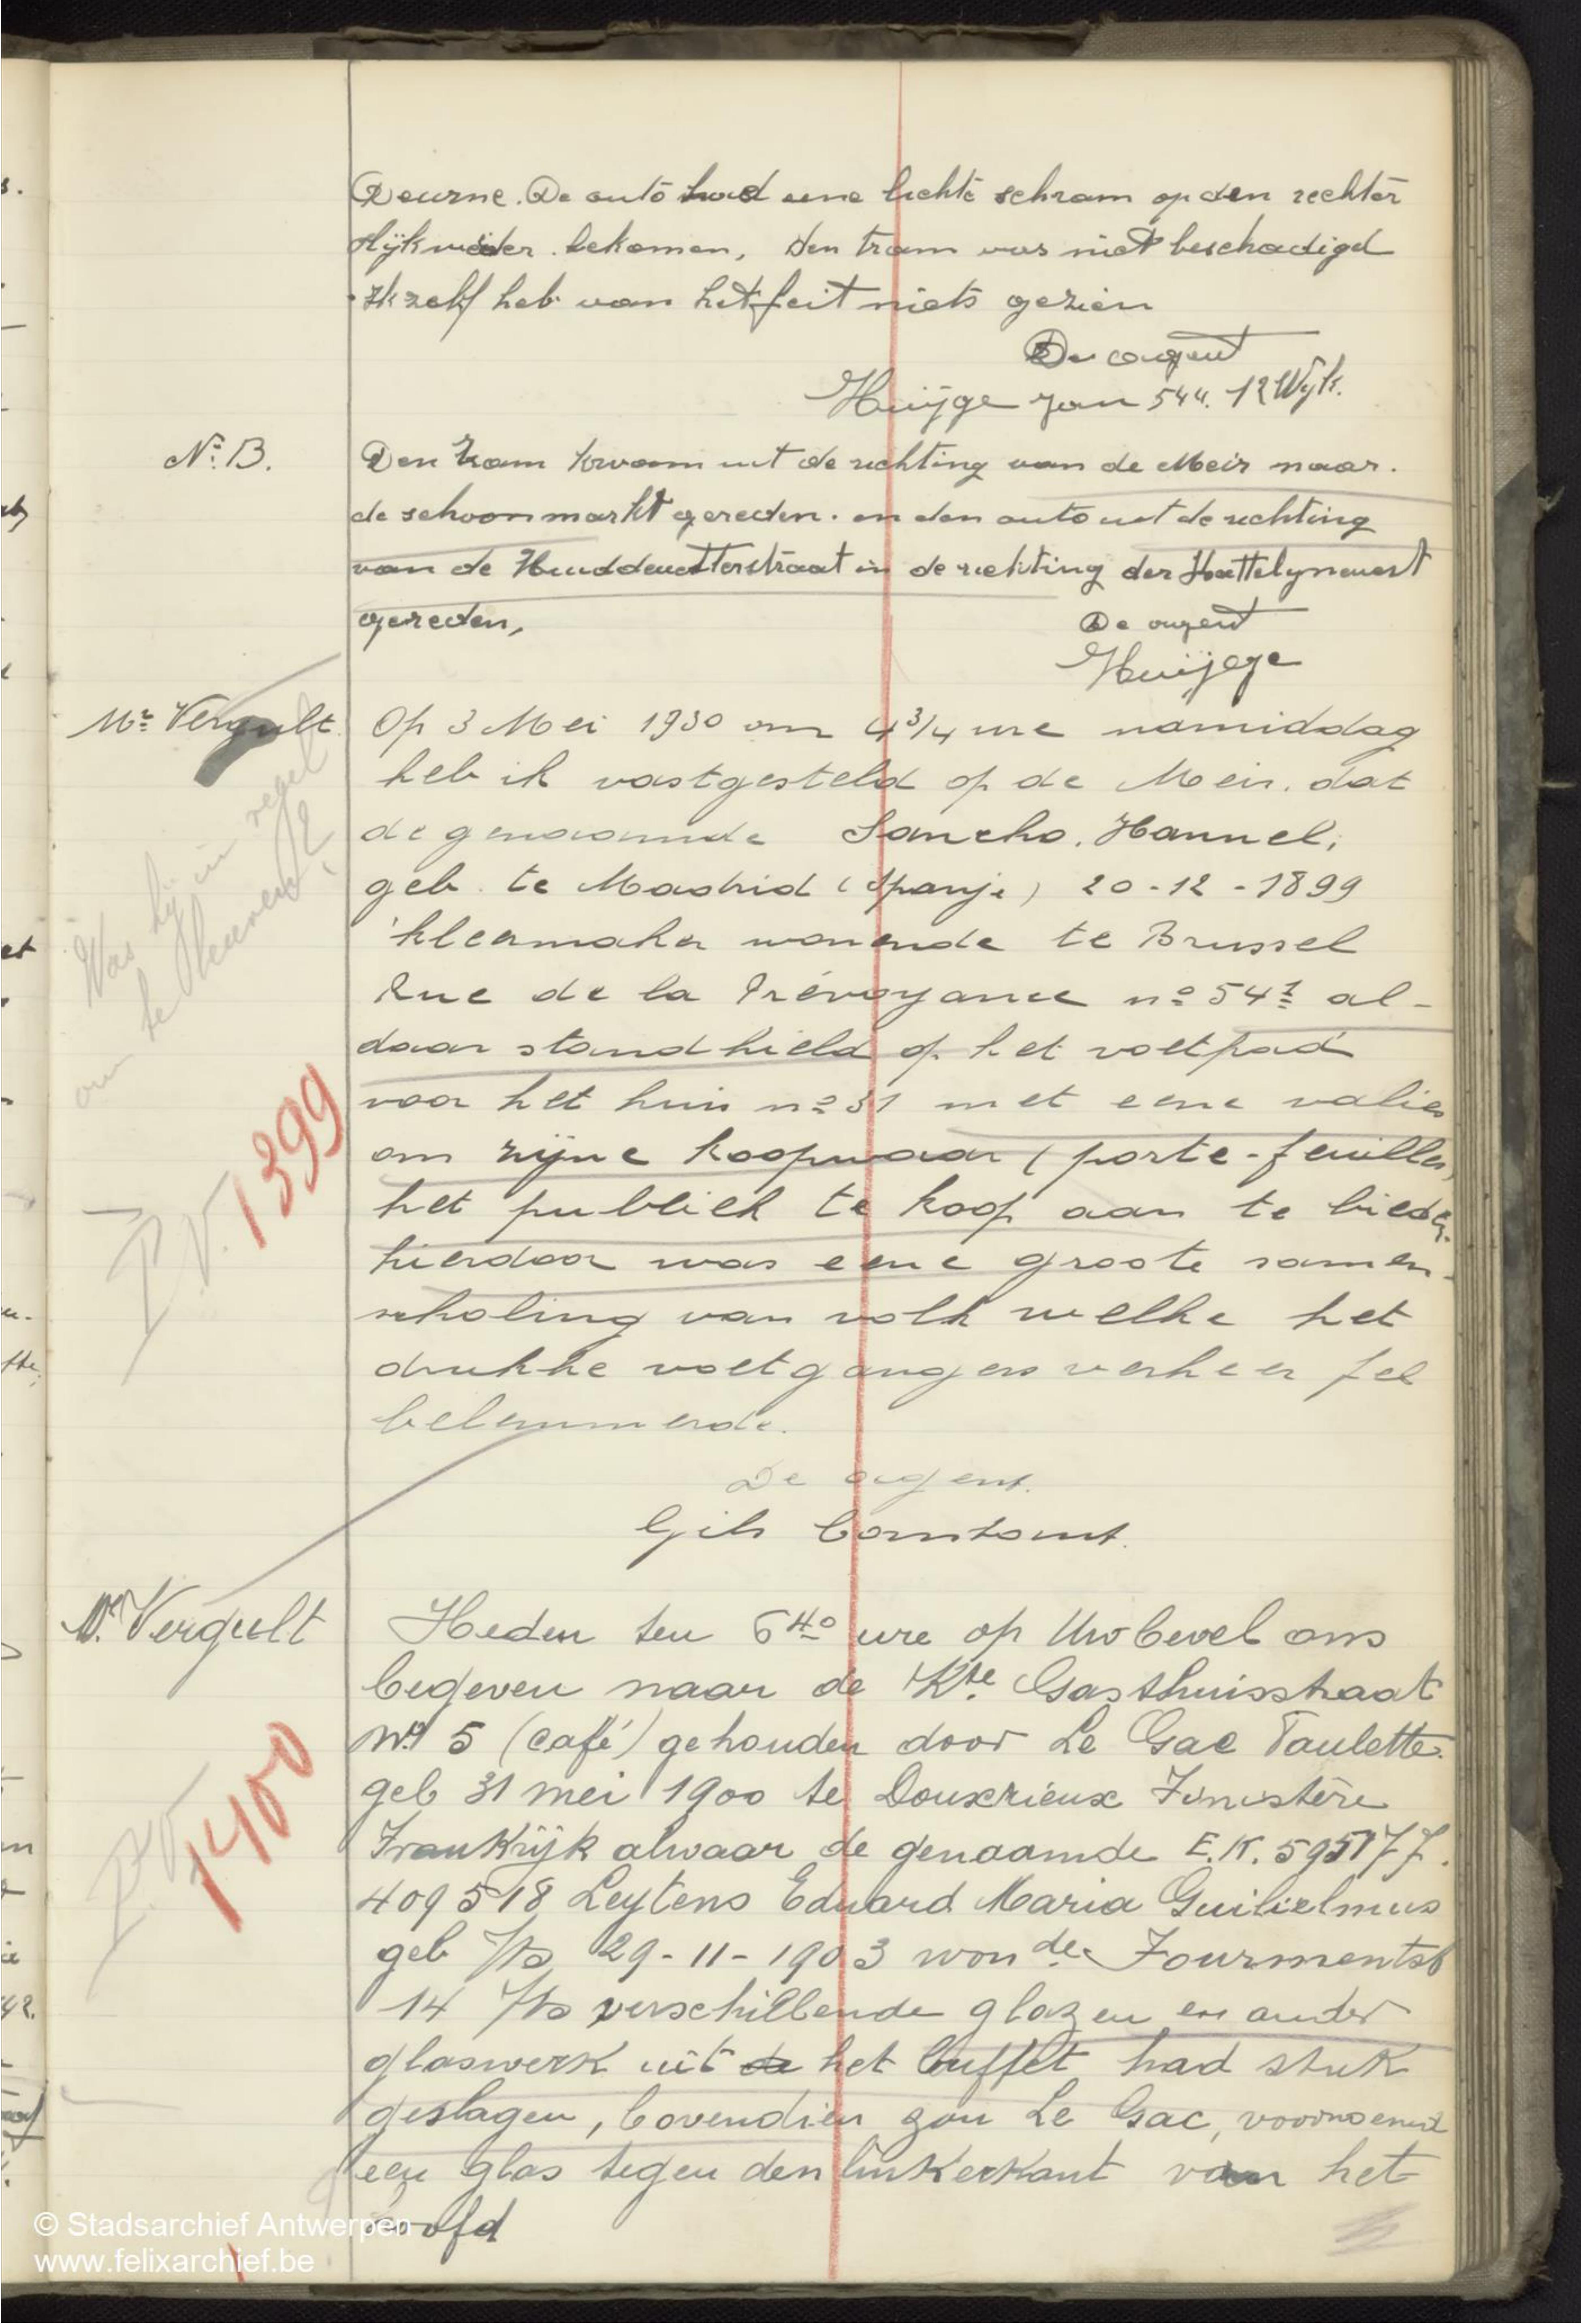 Deurne. De auto had eene lichte schram op den rechter
slijkweider bekomen, den tram was niet beschadigd
Ik zelf heb van het feit niets gezien
De agent
Huijge Jan 544. 12 Wijk.
N: B.
Den tram kwam uit de richting van de Meir naar.
de schoonmarkt gereden. en den auto uit de richting
van de Huiddeuetterstraat in de richting der Kattelynevest
gereden,
De agent
Huijge
Mr Vergult
Op 3 Mei 1930 om 4 3/4 ure namiddag
heb ik vastgesteld op de Meir. dat
de genaamde Sancho, Hannel,
geb. te Madrid (Spanje) 20-12-1899
kleermaker wonende te Brussel
Rue de la Prévoyance no 54 al-
daar stand hield op het voetpad
voor het huis no 31 met eene valies
om zijne koopwaar (porte-feuilles)
het publiek te koop aan te bieden.
hierdoor was eene groote samen-
scholing van volk welke het
drukke voetgangers verkeer fel
belemmerde.
De agent.
Gils Constant.
Was hij in regel
om te leuren?
P.V. 1399
Mr Vergult
Heden ten 6 40 ure op Uw bevel ons
begeven naar de Kte Gasthuisstraat
No 5 (café) gehouden door Le Gac Paulette
geb 31 mei 1900 te Finistère
Frankrijk alwaar de genaamde E.K. 5951
409518 Leytens Eduard Maria Guilielmus
geb 29-11-1903 won de Fourmentst
14 verschillende glazen en ander
glaswerk uit de het buffet had stuk
geslagen, bovendien zou Le Gac, voornoemd
een glas tegen den linkerkant van het
hoofd
P.V. 1400
© Stadsarchief Antwerpen
www.felixarchief.be